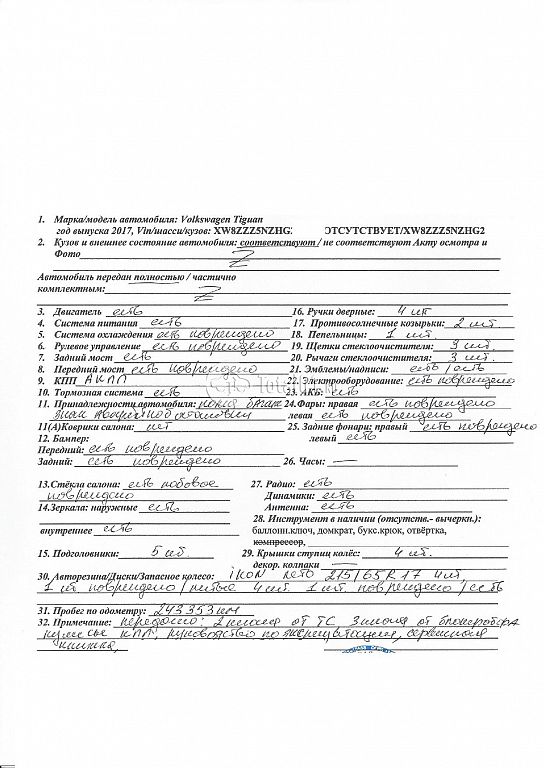 1. Марка/модель автомобиля: Volkswagen Tiguan
год выпуска 2017, Vin/шасси/кузов: XW8ZZZ5NZHG: ЭТСУТСТВУЕТ/XW8ZZZ5NZHG2
2. Кузов и внешнее состояние автомобиля: соответствуют / не соответствуют Акту осмотра и
Фото Z
Автомобиль передан полностью / частично
комплектным: Z
3. Двигатель есть
4. Система питания есть
5. Система охлаждения есть повреждено
6. Рулевое управление есть повреждено
7. Задний мост есть
8. Передний мост есть повреждено
9. КПП АКПП
10. Тормозная система есть
11. Принадлежности автомобиля: полка багаж
знак аварийной остановки
11(А)Коврики салона: нет
12. Бампер:
Передний: есть повреждено
Задний: есть повреждено
13.Стёкла салона: есть лобовое
повреждено
14.Зеркала: наружные есть
внутреннее есть
15. Подголовники: 5 шт.
16. Ручки дверные: 4 шт
17. Противосолнечные козырьки: 2 шт.
18. Пепельницы: 1 шт.
19. Щетки стеклоочистителя: 3 шт.
20. Рычаги стеклоочистителя: 3 шт.
21. Эмблемы/надписи: есть / есть
22. Электрооборудование: есть повреждено
23. АКБ: есть
24.Фары: правая есть повреждено
левая есть повреждено
25. Задние фонари: правый есть повреждено
левый есть
26. Часы: —
27. Радио: есть
Динамики: есть
Антенна: есть
28. Инструмент в наличии (отсутств.- вычеркн.):
баллонн.ключ, домкрат, букс.крюк, отвёртка,
компрессор,
29. Крышки ступиц колёс: 4 шт.
декор. колпаки —
30. Авторезина/Диски/Запасное колесо: IKON лето 215/65 R 17 4 шт
1 шт. повреждено / литые 4 шт. 1 шт. повреждено / есть
31. Пробег по одометру: 243353 км
32. Примечание: передано: 2 ключа от ТС 3 ключа от блокиратора
кулисы КПП, руководство по эксплуатации, сервисная
книжка,